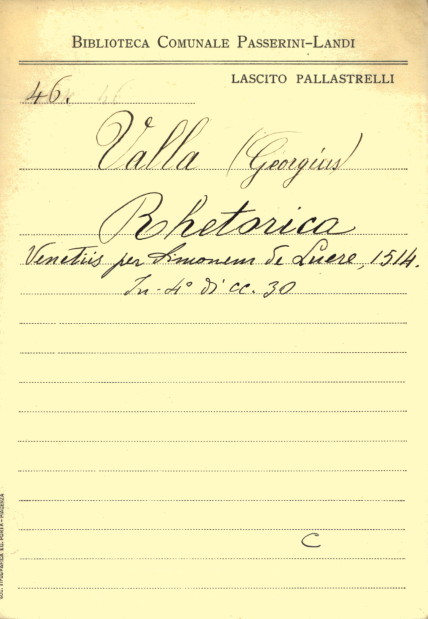 BIBLIOTECA COMUNALE PASSERINI-LANDI
LASCITO PALLASTRELLI
46.
Valla (Georgius)
Rhetorica
Venetiis per Simonem de Luere, 1514.
In-4° di cc. 30
C